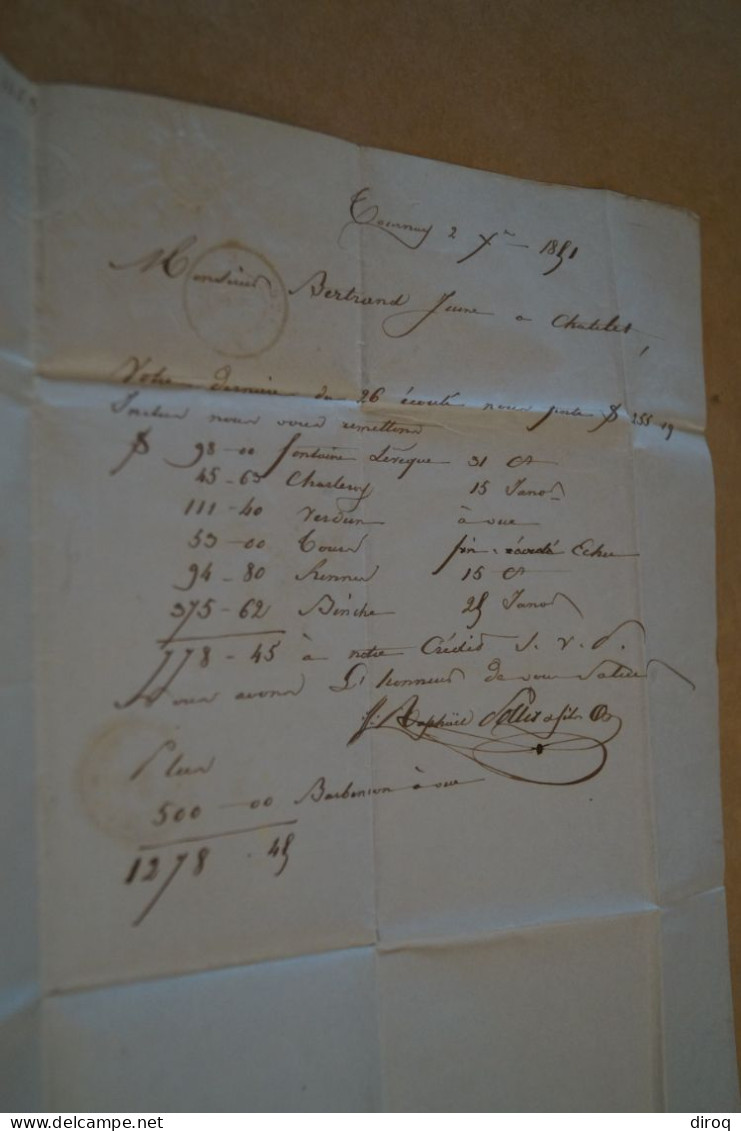 Tournay 2 Xbre 1851
Monsieur Bertrand Jeune a Chatelet
Votre dernière du 26 écoulé nous porte 255 19
Inclus nous vous remettons
98-00 fontaine Lévèque 31 Ct
45-63 Charleroy 15 Janv
111-40 Verdun à vue
53-00 Tours fin écoulé Echu
94-80 Rennes 15 Ct
375-62 Binche 25 Janv
778-45 à notre Crédit S. V. P.
Nous avons L'honneur de vous Saluer
Raphaël & fils
Plus
500-00 Barbencon à vue
1278-45
diroq